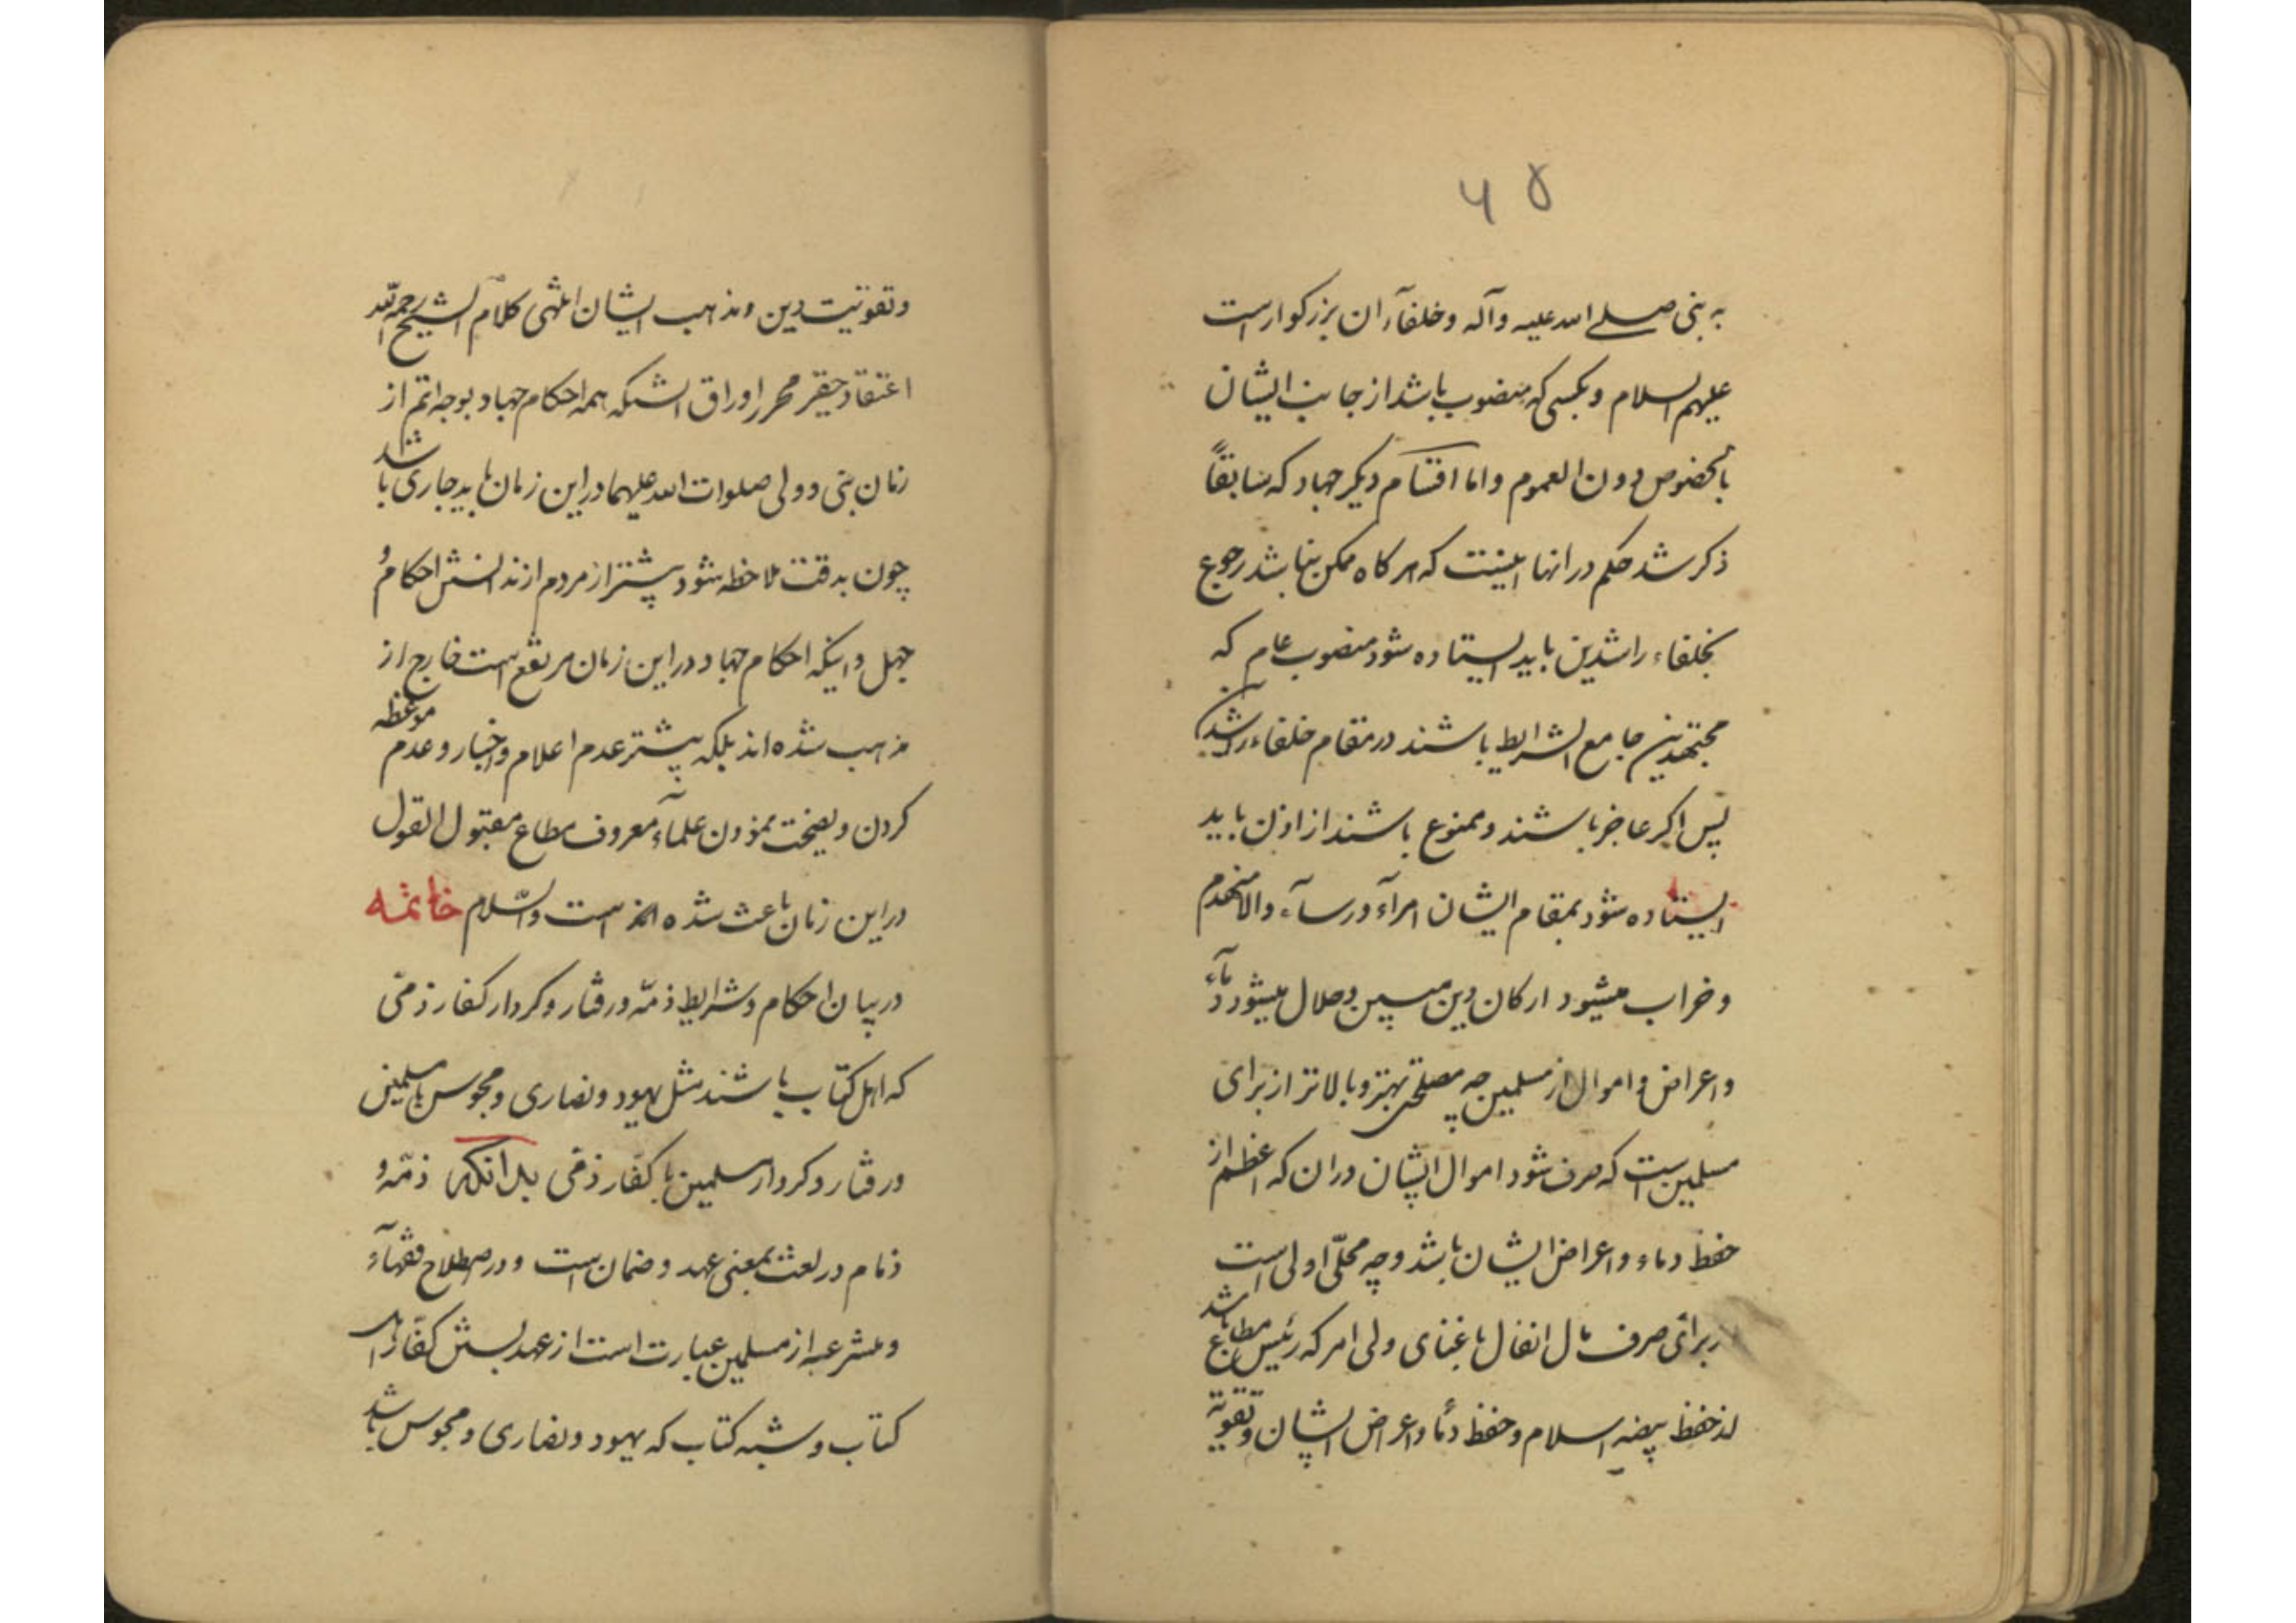 ۴۵
به نبی صلی الله علیه وآله وخلفآء ان بزرکوار است
علیهم السلام وبکسی که منصوب باشد از جانب ایشان
بالخصوص دون العموم واما اقسام دیکر جهاد که سابقاً
ذکر شد حکم در انها اینست که هر کاه ممکن نباشد رجوع
بخلفاء راشدین باید ایستاده شود منصوب عام که
مجتهدین جامع الشرایط باشند در مقام خلفاء راشدین
پس اکر عاجز باشند وممنوع باشند از اذن باید
ایستاده شود بمقام ایشان امرآء ورسآء والا منهدم
وخراب میشود ارکان دین مبین وحلال میشود دمآء
واعراض واموال از مسلمین چه مصلحتی بهتر وبالاتر از برای
مسلمین است که صرف شود اموال ایشان در ان که اعظم از
حفظ دماء واعراض ایشان باشد وچه محلّی اولی است
برای صرف مال انفال باغنای ولی امر که رئیس مطاع باشد
لذ حفظ بیضه اسلام وحفظ دمآء واعراض ایشان وتقویة
وتقویت دین ومذهب ایشان انتهی کلام الشیخ رحمه الله
اعتقاد حقیر محرر اوراق انستکه همه احکام جهاد بوجه اتم از
زمان نبی وولی صلوات الله علیهما در این زمان باید جاری باشد
چون بدقت ملاحظه شود بیشتر از مردم از ندانستن احکام و
جهل واینکه احکام جهاد در این زمان مرتفع است خارج از
مذهب شده اند بلکه بیشتر عدم اعلام واخبار وعدم موعظه
کردن ونصیحت نمودن علمآء معروف مطاع مقبول القول
در این زمان باعث شده اند است والسّلام خاتمه
در بیان احکام وشرایط ذمّه ورفتار وکردار کفار ذمّی
که اهل کتاب باشند مثل یهود ونصاری ومجوس بامسلمین
ورفتار وکردار مسلمین با کفّار ذمّی بدانکه ذمّه و
ذمام در لغت بمعنی عهد وضمان است ودر اصطلاح فقهآء
ومتشرعه از مسلمین عبارت است از عهد بستن کفّار اهل
کتاب وشبه کتاب که یهود ونصاری ومجوس باشد